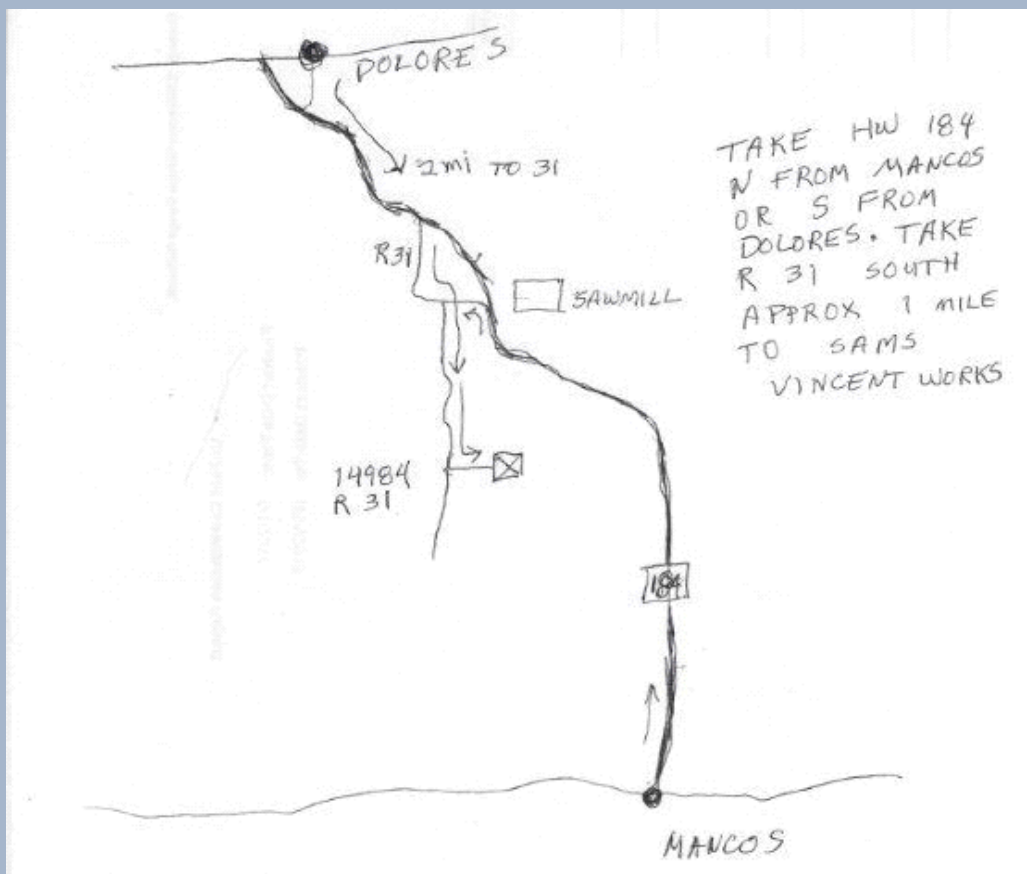 DOLORES
2 mi TO 31
R31
SAWMILL
14984
R 31
184
MANCOS
TAKE HW 184
N FROM MANCOS
OR S FROM
DOLORES. TAKE
R 31 SOUTH
APPROX 1 MILE
TO SAMS
VINCENT WORKS